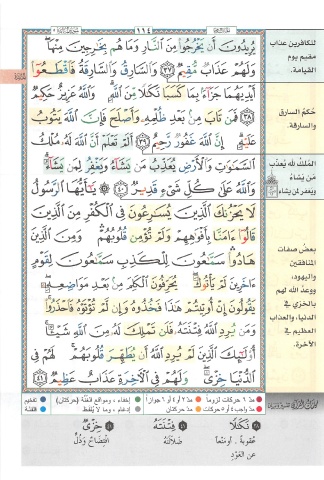 ١١٤
يُرِيدُونَ أَن يَخْرُجُوا۟ مِنَ ٱلنَّارِ وَمَا هُم بِخَٰرِجِينَ مِنْهَا
وَلَهُمْ عَذَابٌ مُّقِيمٌ ٣٧ وَٱلسَّارِقُ وَٱلسَّارِقَةُ فَٱقْطَعُوٓا۟
أَيْدِيَهُمَا جَزَآءًۢ بِمَا كَسَبَا نَكَٰلًا مِّنَ ٱللَّهِ وَٱللَّهُ عَزِيزٌ حَكِيمٌ
٣٨ فَمَن تَابَ مِنۢ بَعْدِ ظُلْمِهِۦ وَأَصْلَحَ فَإِنَّ ٱللَّهَ يَتُوبُ
عَلَيْهِ إِنَّ ٱللَّهَ غَفُورٌ رَّحِيمٌ ٣٩ أَلَمْ تَعْلَمْ أَنَّ ٱللَّهَ لَهُۥ مُلْكُ
ٱلسَّمَٰوَٰتِ وَٱلْأَرْضِ يُعَذِّبُ مَن يَشَآءُ وَيَغْفِرُ لِمَن يَشَآءُ
وَٱللَّهُ عَلَىٰ كُلِّ شَىْءٍ قَدِيرٌ ٤٠ يَٰٓأَيُّهَا ٱلرَّسُولُ
لَا يَحْزُنكَ ٱلَّذِينَ يُسَٰرِعُونَ فِى ٱلْكُفْرِ مِنَ ٱلَّذِينَ
قَالُوٓا۟ ءَامَنَّا بِأَفْوَٰهِهِمْ وَلَمْ تُؤْمِن قُلُوبُهُمْ وَمِنَ ٱلَّذِينَ
هَادُوا۟ سَمَّٰعُونَ لِلْكَذِبِ سَمَّٰعُونَ لِقَوْمٍ
ءَاخَرِينَ لَمْ يَأْتُوكَ يُحَرِّفُونَ ٱلْكَلِمَ مِنۢ بَعْدِ مَوَاضِعِهِۦ
يَقُولُونَ إِنْ أُوتِيتُمْ هَٰذَا فَخُذُوهُ وَإِن لَّمْ تُؤْتَوْهُ فَٱحْذَرُوا۟
وَمَن يُرِدِ ٱللَّهُ فِتْنَتَهُۥ فَلَن تَمْلِكَ لَهُۥ مِنَ ٱللَّهِ شَيْـًٔا
أُو۟لَٰٓئِكَ ٱلَّذِينَ لَمْ يُرِدِ ٱللَّهُ أَن يُطَهِّرَ قُلُوبَهُمْ لَهُمْ فِى
ٱلدُّنْيَا خِزْىٌ وَلَهُمْ فِى ٱلْءَاخِرَةِ عَذَابٌ عَظِيمٌ ٤١
للكافرين عذاب
مقيم يوم
القيامة.
حكم السارق
والسارقة.
الملك لله يعذب
من يشاء
ويغفر لمن يشاء
بعض صفات
المنافقين
واليهود،
ووعد الله لهم
بالخزي في
الدنيا، والعذاب
العظيم في
الآخرة.
مد ٦ حركات لزوماً
مد ٢ أو ٤ أو ٦ جوازاً
إخفاء، ومواقع الغنة (حركتان)
تفخيم
مد واجب ٤ أو ٥ حركات
مد حركتان
إدغام، وما لا يلفظ
قلقلة
٣٨ نَكَالًا
عقوبةً، أو منعاً
عن العود
٤١ فِتْنَتَهُ
ضلالته
٤١ خِزْيٌ
افتضاح وذل